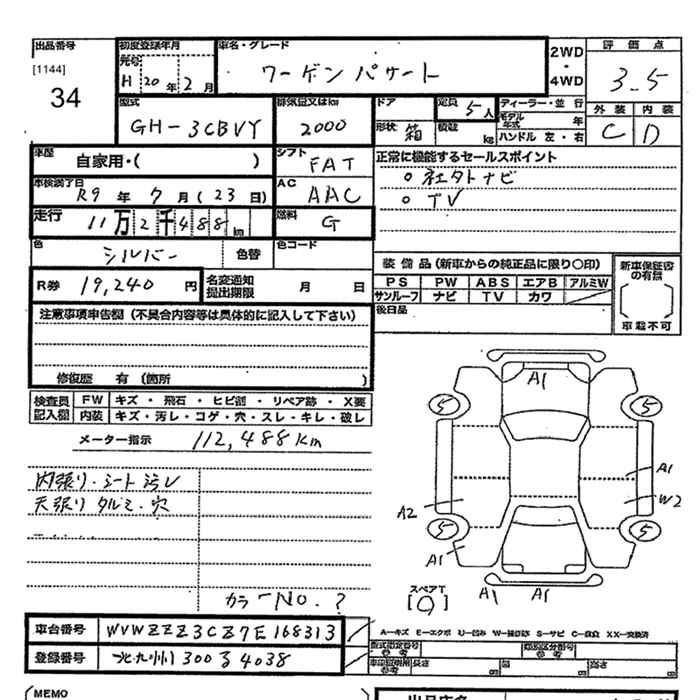 出品番号
[1144]
34
初度登録年月
先初
H 20 年 2 月
車名・グレード
ワーゲン パサート
2WD
・
4WD
評価点
3.5
外装 内装
C D
型式
GH-3CBVY
排気量又はkW
2000
ドア
形状 箱
定員 5 人
積載 kg
ディーラー・並行
モデル年式 年
ハンドル 左・右
車歴
自家用・( )
シフト
FAT
正常に機能するセールスポイント
○ 社外ナビ
○ TV
車検満了日
R9 年 7 月 (23日)
AC
AAC
走行
11万2千488km
燃料
G
色
シルバー
色替
色コード
装備品(新車からの純正品に限り○印)
PS PW ABS エアB アルミW
サンルーフ ナビ TV カワ
後日品
新車保証書の有無
車載不可
R券 19,240 円
名変通知提出期限 月 日
注意事項申告欄(不具合内容等は具体的に記入して下さい)
修復歴 有(箇所 )
検査員記入欄
FW キズ・飛石・ヒビ割・リペア跡・X要
内装 キズ・汚レ・コゲ・穴・スレ・キレ・破レ
メーター指示 112,488Km
内張り・シート汚レ
天張りタルミ・穴
カラーNo.?
A1
5 5
A1
A2 W2
5 5
A1
A1 A1
スペアT
[○]
車台番号 WVWZZZ3CZ7E168313
登録番号 北九州300る4038
A-キズ E-エクボ U-凹み W-補修跡 S-サビ C-腐食 XX-交換済
型式指定番号 参考
類別区分番号 参考
車印証明用 参考
長さ cm
幅 cm
高さ cm
MEMO
出品店名